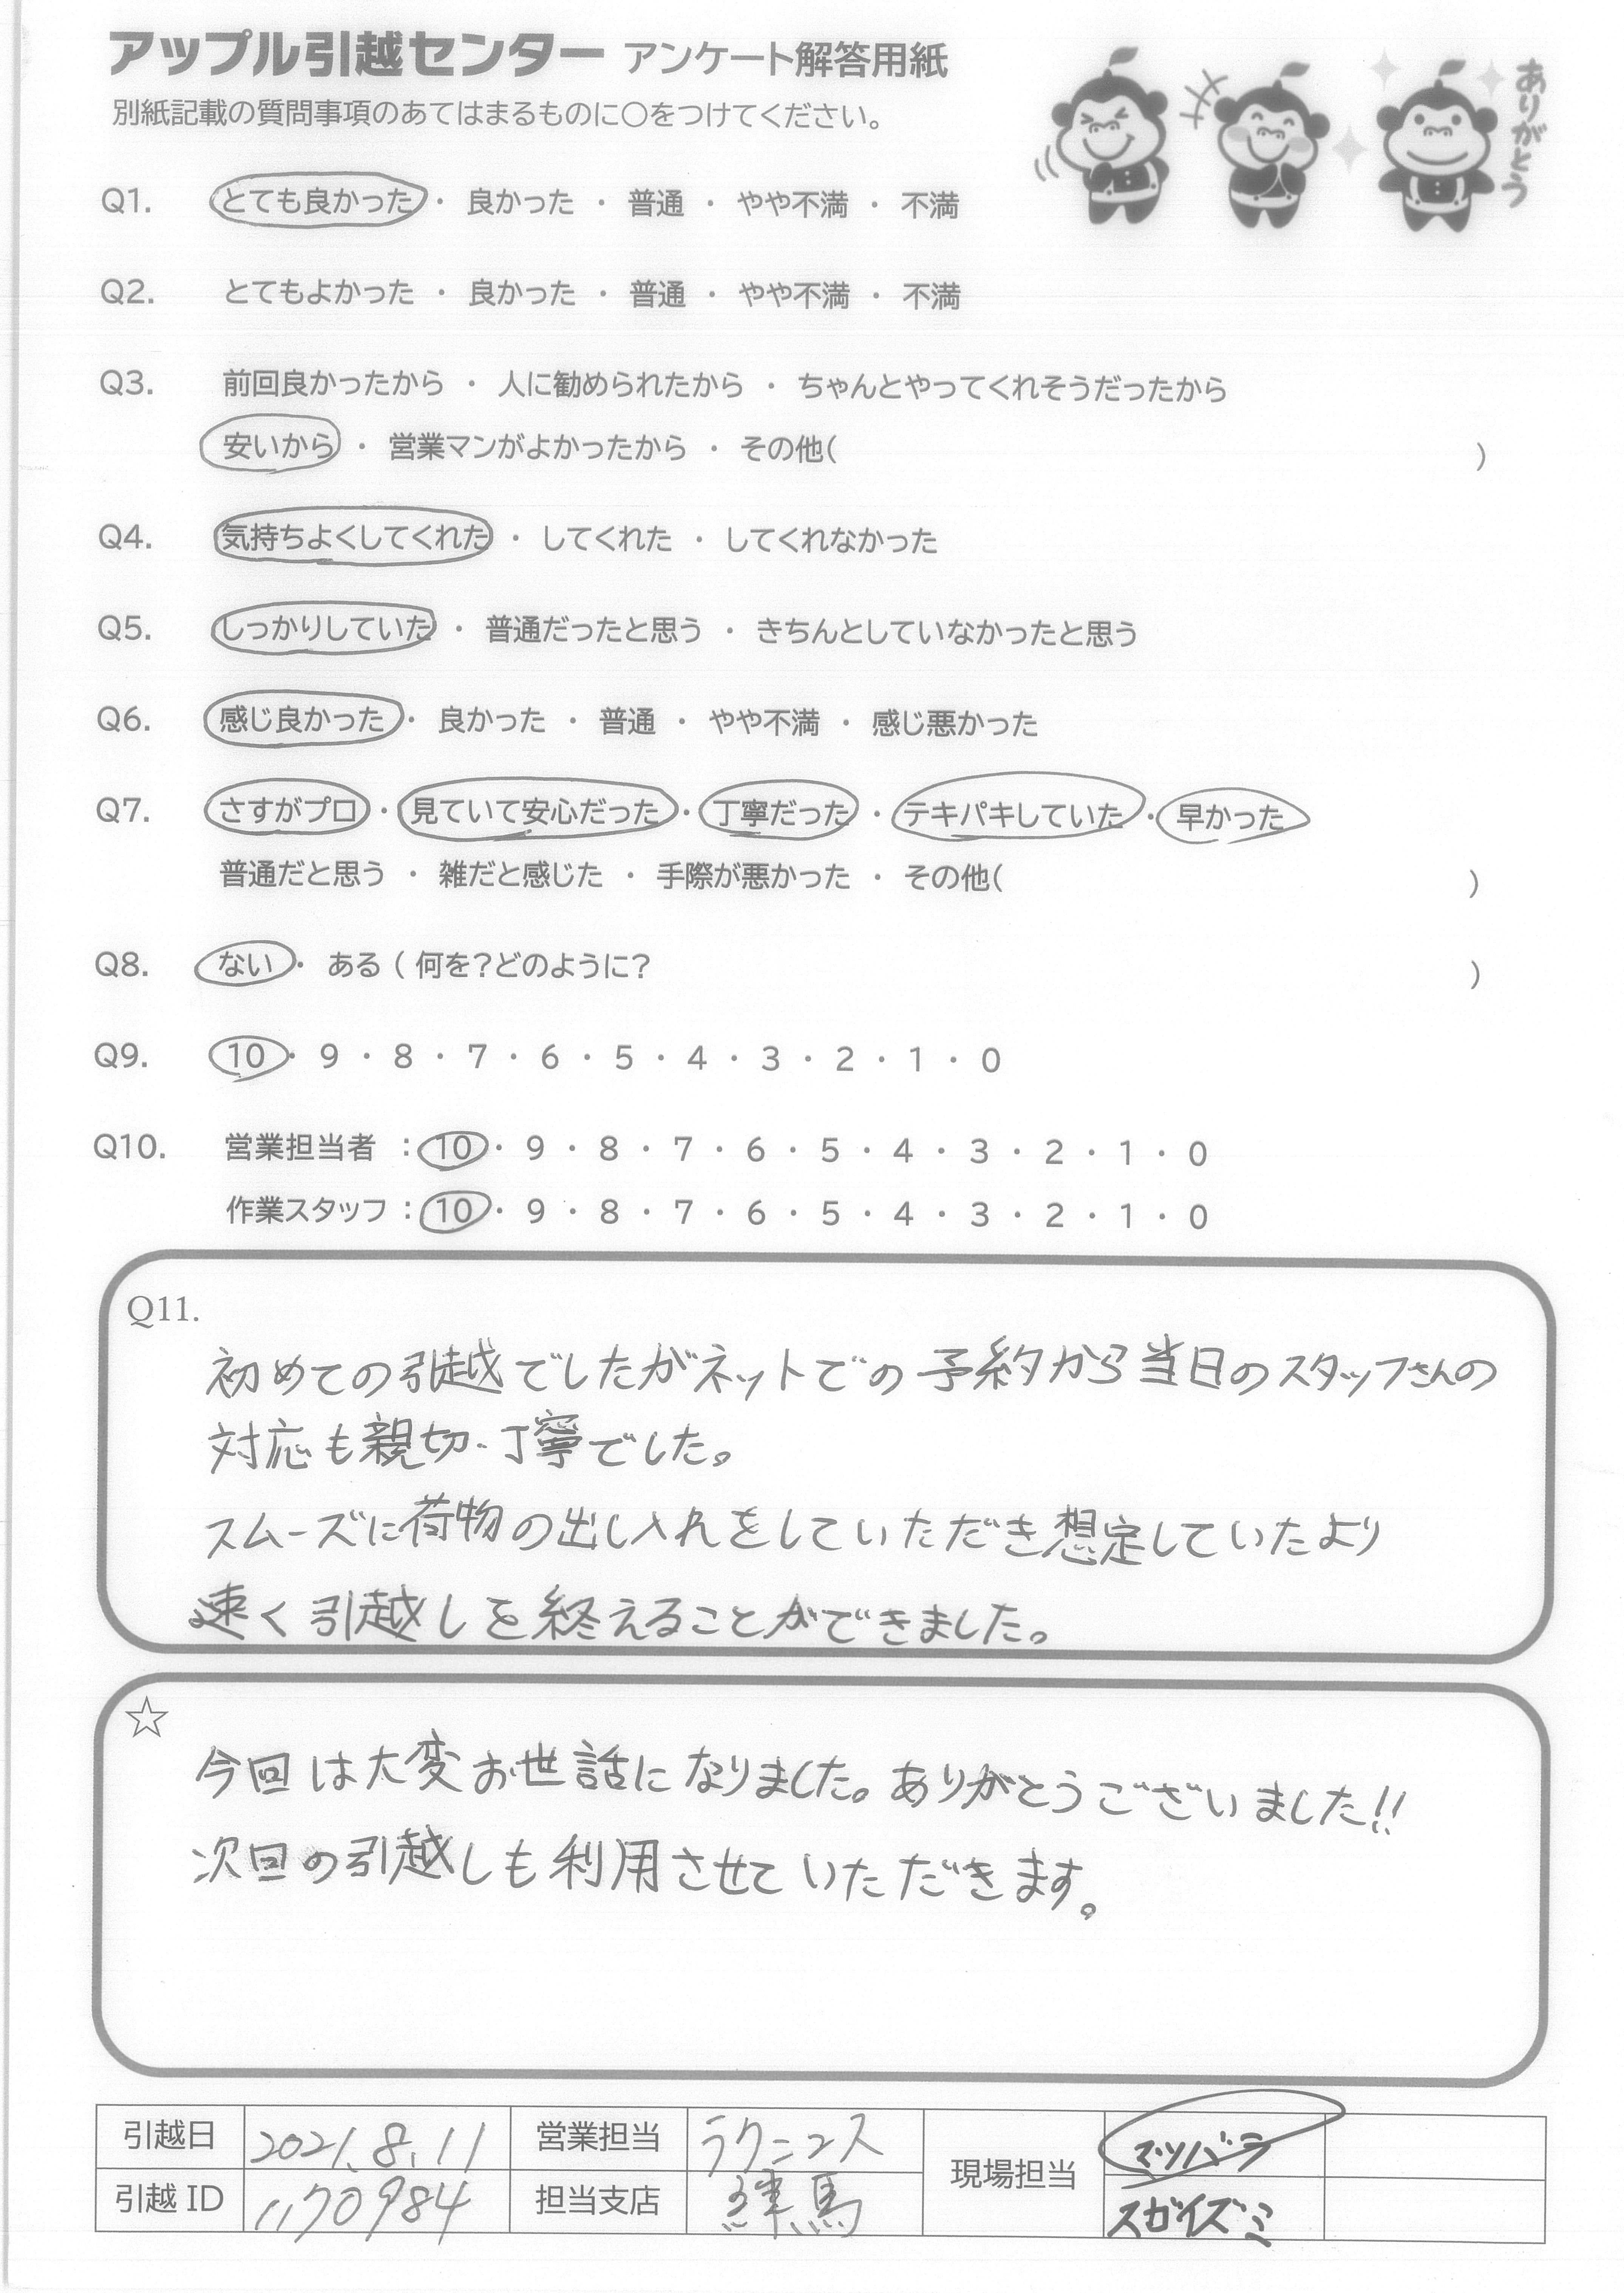 アップル引越センター アンケート解答用紙
別紙記載の質問事項のあてはまるものに○をつけてください。
ありがとう
Q1. とても良かった ・ 良かった ・ 普通 ・ やや不満 ・ 不満
Q2. とてもよかった ・ 良かった ・ 普通 ・ やや不満 ・ 不満
Q3. 前回良かったから ・ 人に勧められたから ・ ちゃんとやってくれそうだったから
安いから ・ 営業マンがよかったから ・ その他( )
Q4. 気持ちよくしてくれた ・ してくれた ・ してくれなかった
Q5. しっかりしていた ・ 普通だったと思う ・ きちんとしていなかったと思う
Q6. 感じ良かった ・ 良かった ・ 普通 ・ やや不満 ・ 感じ悪かった
Q7. さすがプロ ・ 見ていて安心だった ・ 丁寧だった ・ テキパキしていた ・ 早かった
普通だと思う ・ 雑だと感じた ・ 手際が悪かった ・ その他( )
Q8. ない ・ ある ( 何を?どのように? )
Q9. 10 ・ 9 ・ 8 ・ 7 ・ 6 ・ 5 ・ 4 ・ 3 ・ 2 ・ 1 ・ 0
Q10. 営業担当者 : 10 ・ 9 ・ 8 ・ 7 ・ 6 ・ 5 ・ 4 ・ 3 ・ 2 ・ 1 ・ 0
作業スタッフ : 10 ・ 9 ・ 8 ・ 7 ・ 6 ・ 5 ・ 4 ・ 3 ・ 2 ・ 1 ・ 0
Q11.
初めての引越でしたがネットでの予約から当日のスタッフさんの
対応も親切・丁寧でした。
スムーズに荷物の出し入れをしていただき想定していたより
速く引越しを終えることができました。
☆
今回は大変お世話になりました。ありがとうございました!!
次回の引越しも利用させていただきます。
引越日 2021.8.11 営業担当 ラクニコス 現場担当 マツバラ
引越 ID 1170984 担当支店 練馬 スガイズミ